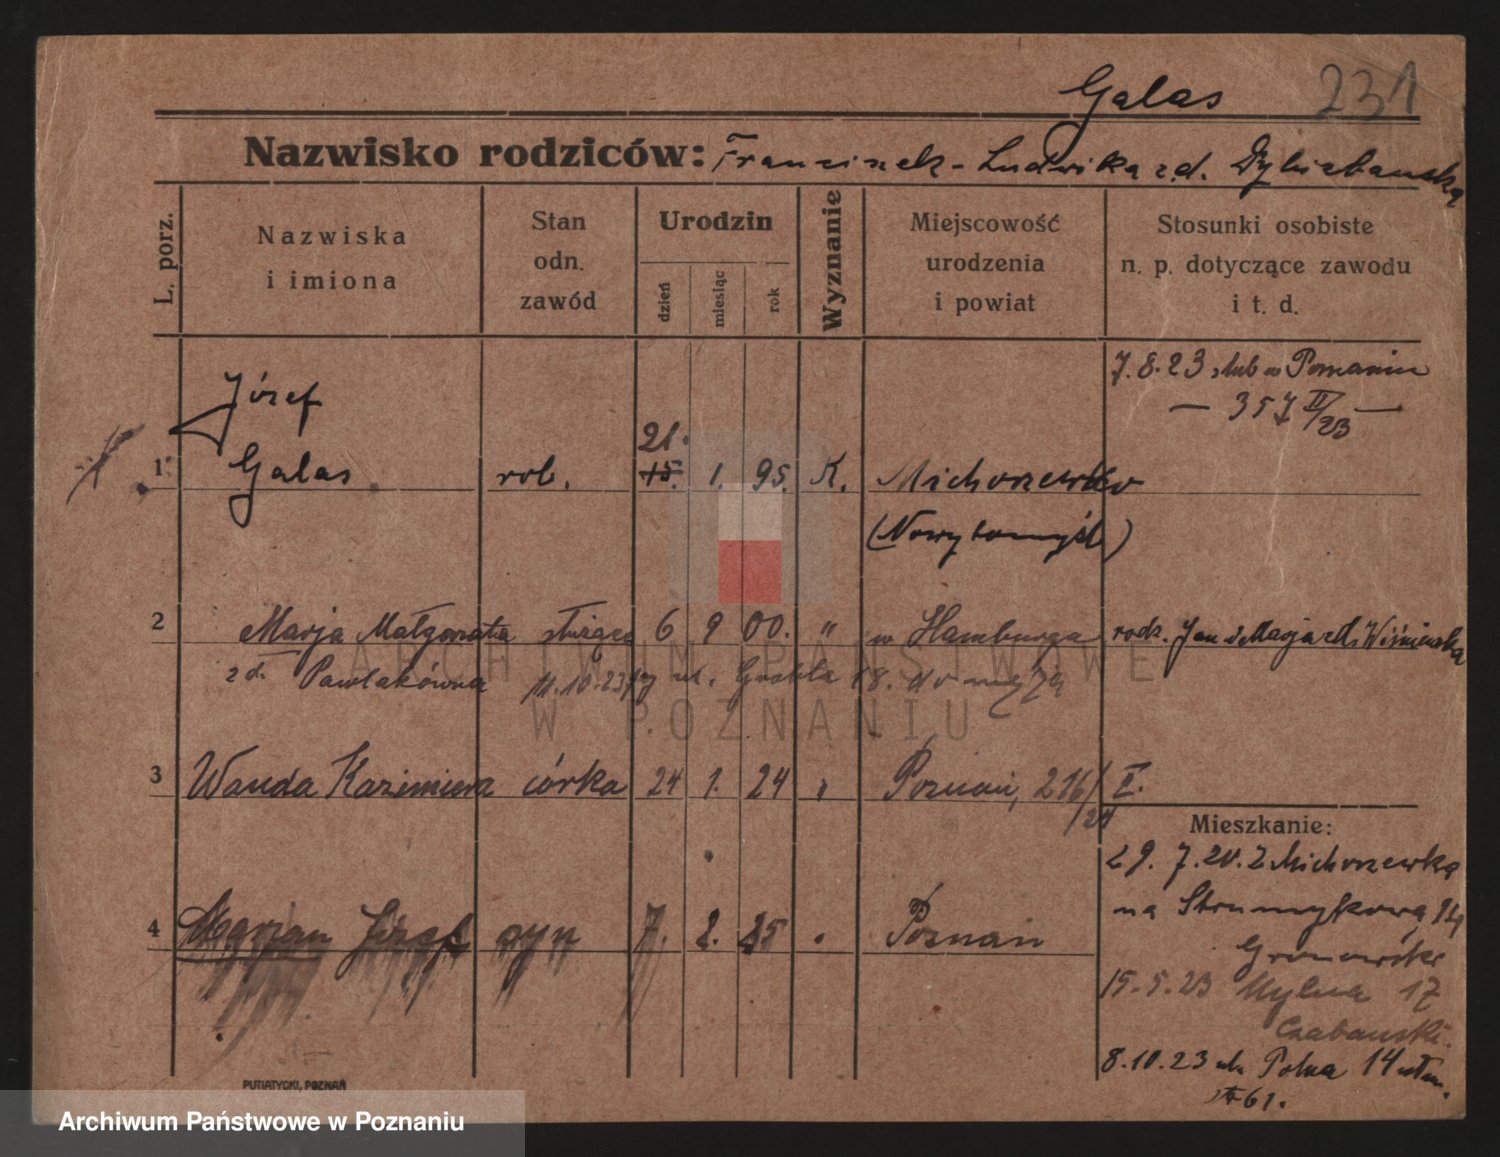 Galas 231
Nazwisko rodziców: Franciszek - Ludwika z d.
L. porz.
Nazwiska i imiona
Stan odn. zawód
Urodzin
dzień
miesiąc
rok
Wyznanie
Miejscowość urodzenia i powiat
Stosunki osobiste n. p. dotyczące zawodu i t. d.
7. 8. 23 ślub w Poznaniu
— 357 II/23 —
Józef
21.
1. Galas rob. 15. 1. 95. K. Michorzewko
(Nowytomyśl)
2 Marja Małgorzata służąca 6 9 00. " w Hamburgu rodz. Jan i Marja z d. Wiśniewska
z d. Pawlakówna 11.10.23 ul. 18. do męża
3 Wanda Kazimiera córka 24 1. 24 " Poznań, 216/24 I.
Mieszkanie:
29. 7. 20. z Michorzewka
na Strumykową
4 Marjan Józef syn 7. 2. 25 " Poznań
15. 5. 23 Mylna 17
8. 10. 23 ul. Polna 14
61.
PUTIATYCKI, POZNAŃ
ARCHIWUM PAŃSTWOWE
W POZNANIU
Archiwum Państwowe w Poznaniu